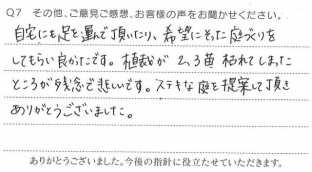 Q7 その他、ご意見ご感想、お客様の声をお聞かせください。
自宅にも足を運んで頂いたり、希望にそった庭づくりを
してもらい良かったです。植栽が2,3苗枯れてしまった
ところが残念で悲しいです。ステキな庭を提案して頂き
ありがとうございました。
ありがとうございました。今後の指針に役立たせていただきます。